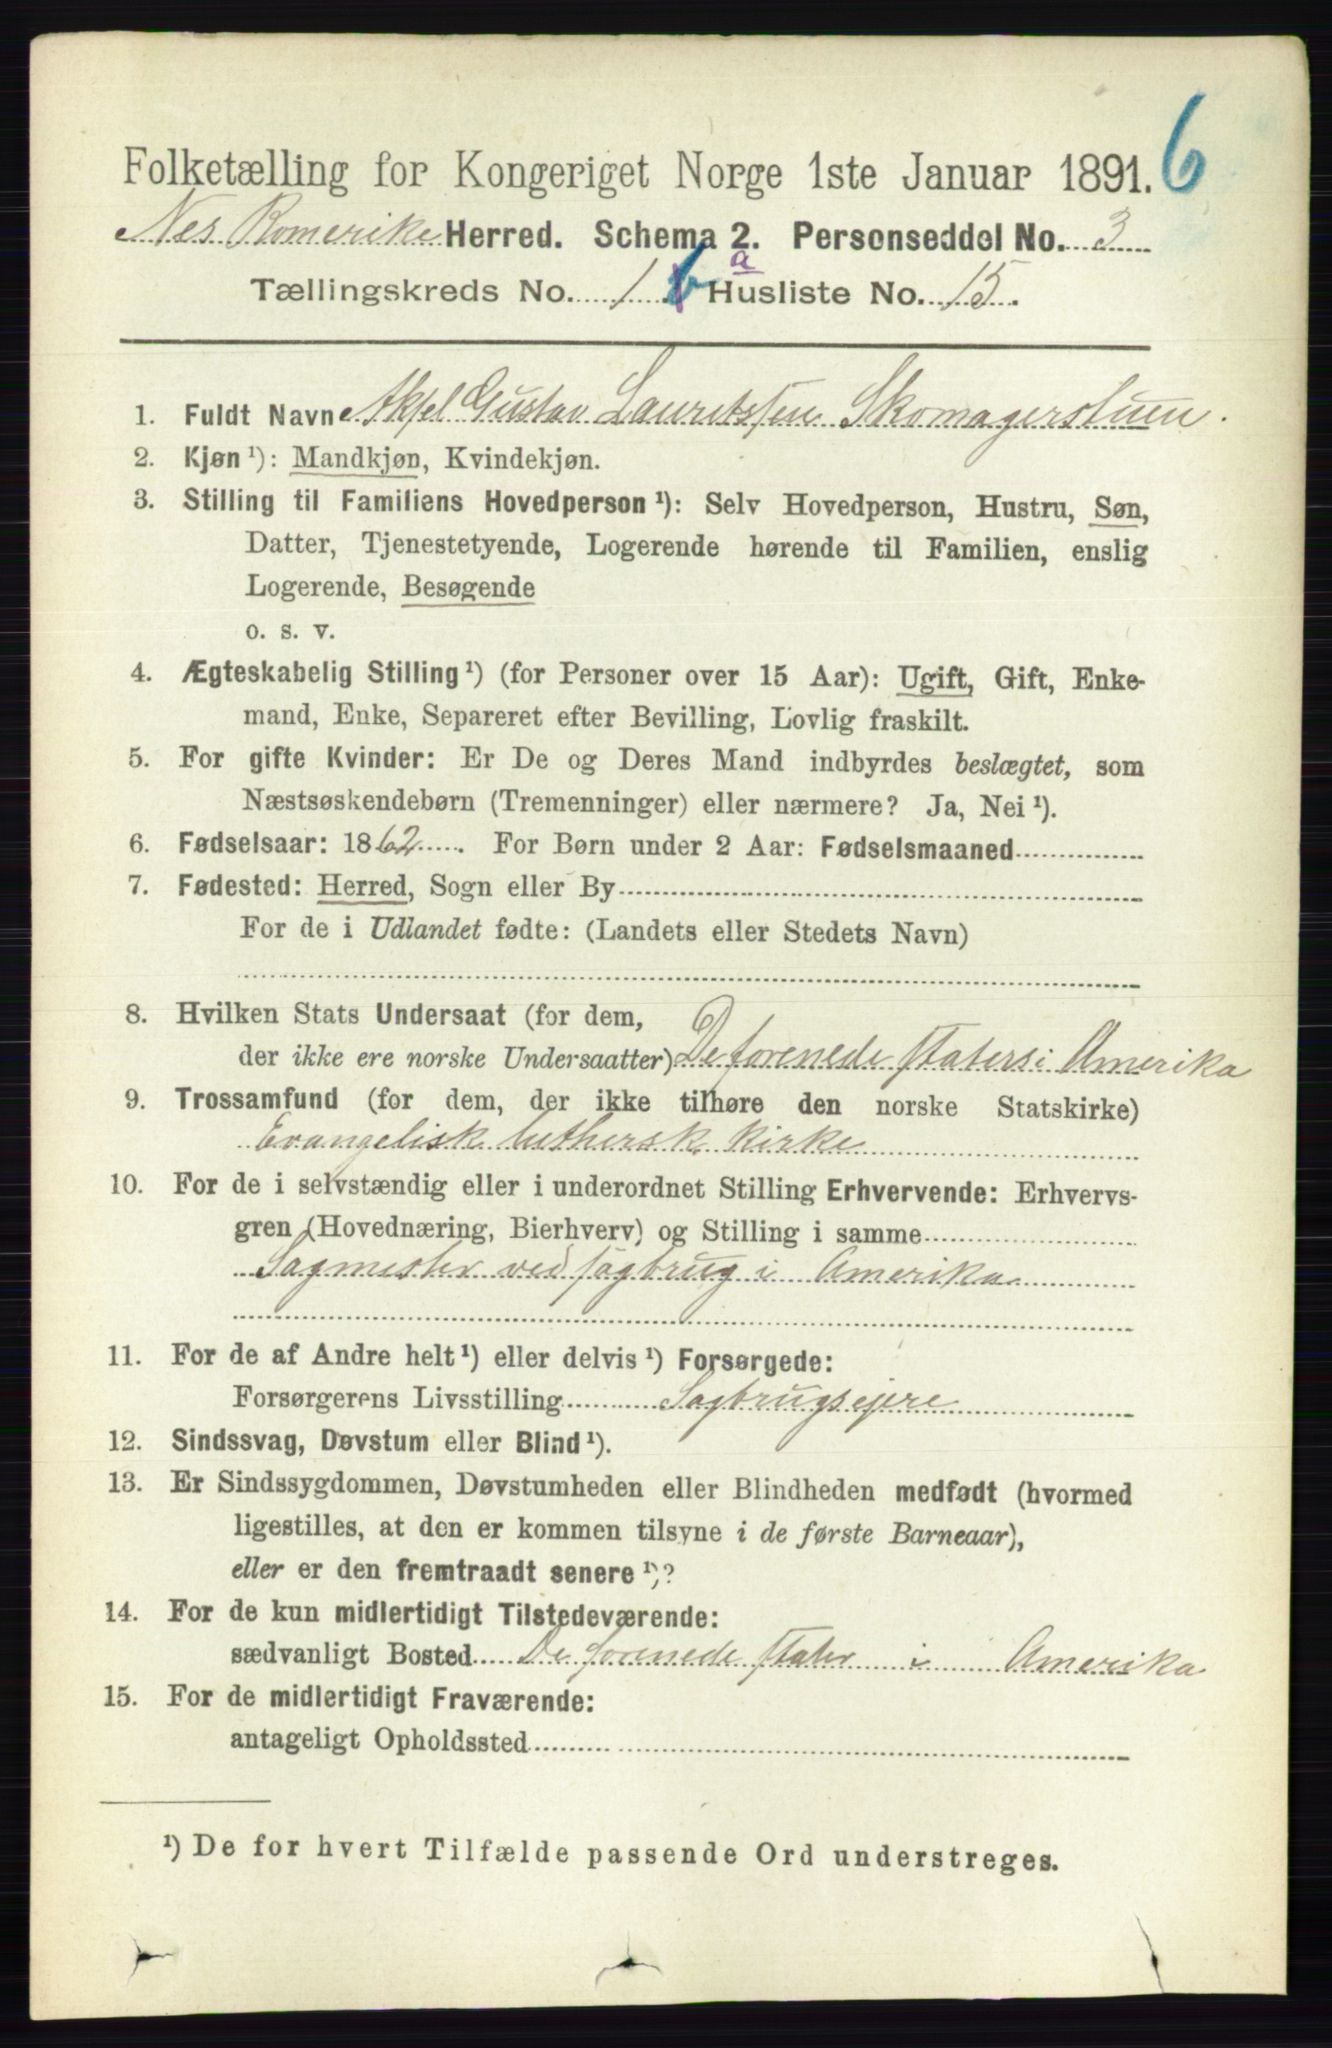 6
Folketælling for Kongeriget Norge 1ste Januar 1891.
Nes Romerike Herred. Schema 2. Personseddel No. 3
Tællingskreds No. 1 b a Husliste No. 15.
1. Fuldt Navn Aksel Gustav Lauritssen Skomagerstuen.
2. Kjøn ¹): Mandkjøn, Kvindekjøn.
3. Stilling til Familiens Hovedperson ¹): Selv Hovedperson, Hustru, Søn,
Datter, Tjenestetyende, Logerende hørende til Familien, enslig
Logerende, Besøgende
o. s. v.
4. Ægteskabelig Stilling ¹) (for Personer over 15 Aar): Ugift, Gift, Enke-
mand, Enke, Separeret efter Bevilling, Lovlig fraskilt.
5. For gifte Kvinder: Er De og Deres Mand indbyrdes beslægtet, som
Næstsøskendebørn (Tremenninger) eller nærmere? Ja, Nei ¹).
6. Fødselsaar: 1862. For Børn under 2 Aar: Fødselsmaaned
7. Fødested: Herred, Sogn eller By
For de i Udlandet fødte: (Landets eller Stedets Navn)
8. Hvilken Stats Undersaat (for dem,
der ikke ere norske Undersaatter) De forenede staters i Amerika
9. Trossamfund (for dem, der ikke tilhøre den norske Statskirke)
Evangelisk luthersk kirke
10. For de i selvstændig eller i underordnet Stilling Erhvervende: Erhvervs-
gren (Hovednæring, Bierhverv) og Stilling i samme
Sagmester ved sagbrug i Amerika
11. For de af Andre helt ¹) eller delvis ¹) Forsørgede:
Forsørgerens Livsstilling Sagbrugsejere
12. Sindssvag, Døvstum eller Blind ¹).
13. Er Sindssygdommen, Døvstumheden eller Blindheden medfødt (hvormed
ligestilles, at den er kommen tilsyne i de første Barneaar),
eller er den fremtraadt senere ¹)?
14. For de kun midlertidigt Tilstedeværende:
sædvanligt Bosted De forenede stater i Amerika
15. For de midlertidigt Fraværende:
antageligt Opholdssted
¹) De for hvert Tilfælde passende Ord understreges.